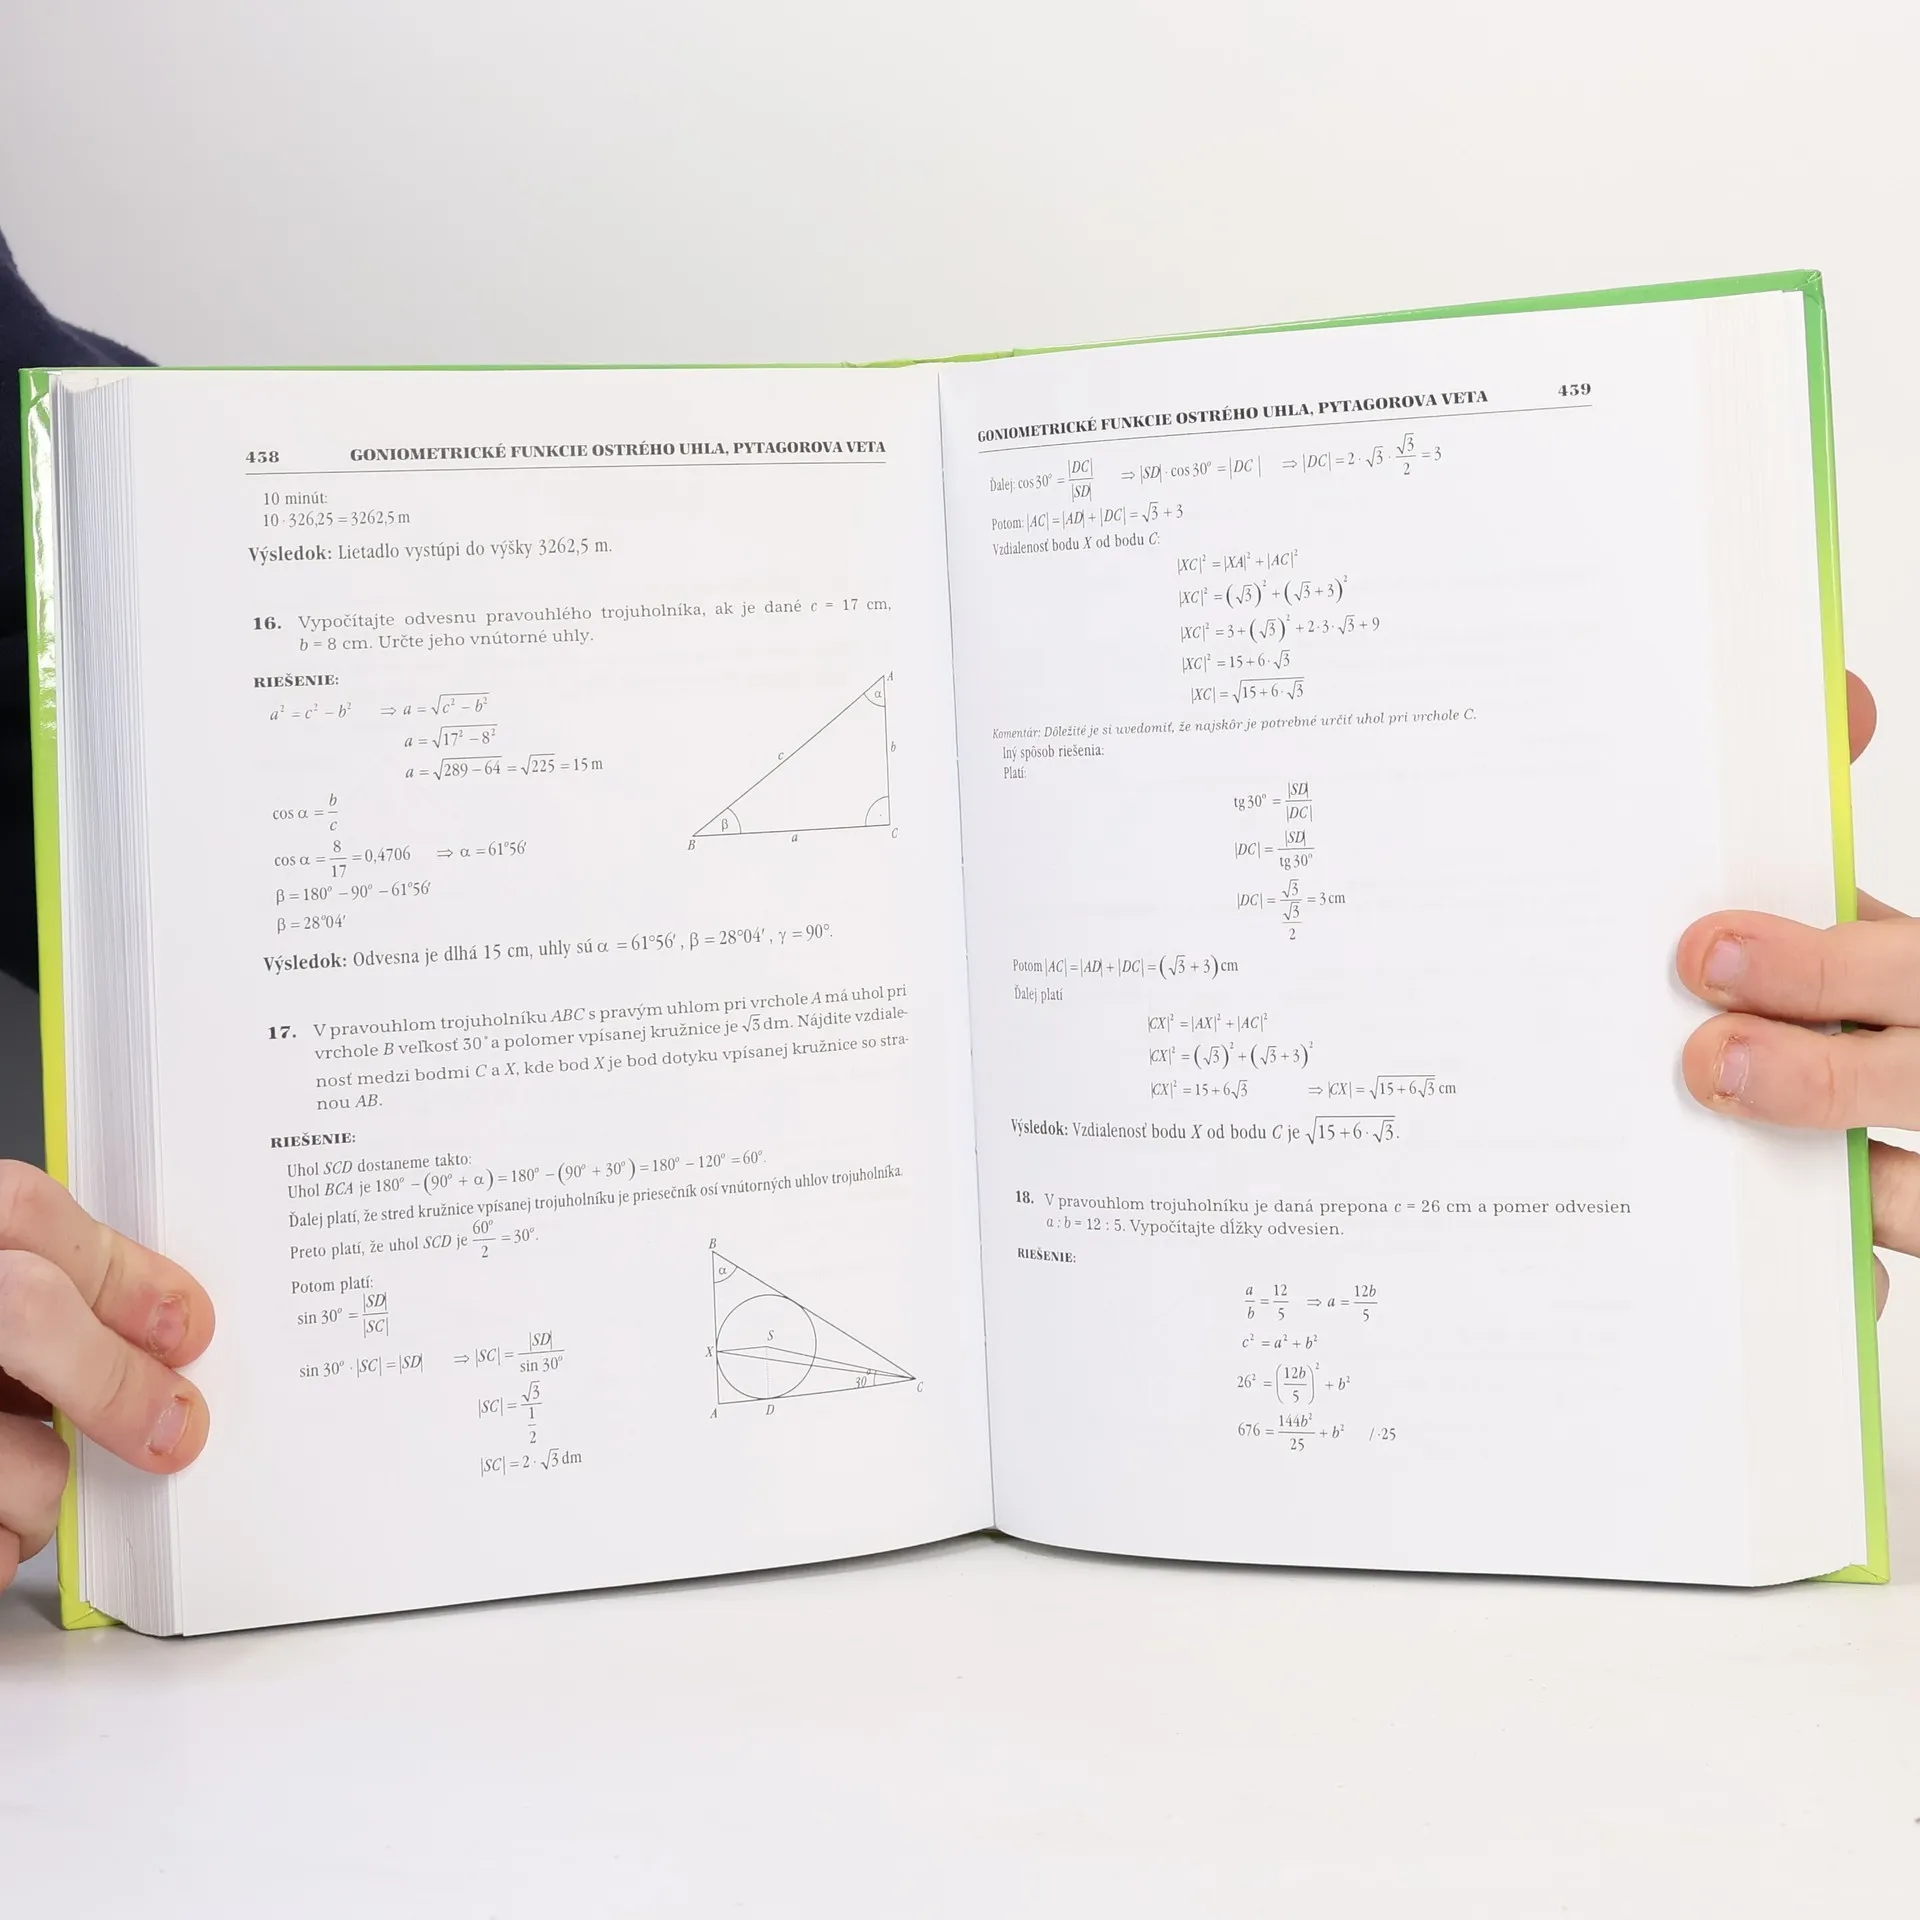 438 GONIOMETRICKÉ FUNKCIE OSTRÉHO UHLA, PYTAGOROVA VETA
10 minút:
10 · 326,25 = 3262,5 m
Výsledok: Lietadlo vystúpi do výšky 3262,5 m.
16. Vypočítajte odvesnu pravouhlého trojuholníka, ak je dané c = 17 cm,
b = 8 cm. Určte jeho vnútorné uhly.
RIEŠENIE:
a² = c² – b² ⇒ a = √(c² – b²)
a = √(17² – 8²)
a = √(289 – 64) = √225 = 15 m
cos α = b/c
cos α = 8/17 = 0,4706 ⇒ α = 61°56'
β = 180° – 90° – 61°56'
β = 28°04'
A
α
c
b
β
B
a
C
Výsledok: Odvesna je dlhá 15 cm, uhly sú α = 61°56', β = 28°04', γ = 90°.
17. V pravouhlom trojuholníku ABC s pravým uhlom pri vrchole A má uhol pri
vrchole B veľkosť 30° a polomer vpísanej kružnice je √3 dm. Nájdite vzdiale-
nosť medzi bodmi C a X, kde bod X je bod dotyku vpísanej kružnice so stra-
nou AB.
RIEŠENIE:
Uhol SCD dostaneme takto:
Uhol BCA je 180° – (90° + α) = 180° – (90° + 30°) = 180° – 120° = 60°.
Ďalej platí, že stred kružnice vpísanej trojuholníku je priesečník osí vnútorných uhlov trojuholníka.
Preto platí, že uhol SCD je 60°/2 = 30°.
Potom platí:
sin 30° = |SD|/|SC|
sin 30° · |SC| = |SD| ⇒ |SC| = |SD|/sin 30°
|SC| = √3/(1/2)
|SC| = 2 · √3 dm
B
α
S
X
30°
C
A
D
GONIOMETRICKÉ FUNKCIE OSTRÉHO UHLA, PYTAGOROVA VETA 439
Ďalej: cos 30° = |DC|/|SD| ⇒ |SD| · cos 30° = |DC| ⇒ |DC| = 2 · √3 · √3/2 = 3
Potom: |AC| = |AD| + |DC| = √3 + 3
Vzdialenosť bodu X od bodu C:
|XC|² = |XA|² + |AC|²
|XC|² = (√3)² + (√3 + 3)²
|XC|² = 3 + (√3)² + 2 · 3 · √3 + 9
|XC|² = 15 + 6 · √3
|XC| = √(15 + 6 · √3)
Komentár: Dôležité je si uvedomiť, že najskôr je potrebné určiť uhol pri vrchole C.
Iný spôsob riešenia:
Platí:
tg 30° = |SD|/|DC|
|DC| = |SD|/tg 30°
|DC| = √3/(√3/2) = 3 cm
Potom |AC| = |AD| + |DC| = (√3 + 3) cm
Ďalej platí
|CX|² = |AX|² + |AC|²
|CX|² = (√3)² + (√3 + 3)²
|CX|² = 15 + 6√3 ⇒ |CX| = √(15 + 6√3) cm
Výsledok: Vzdialenosť bodu X od bodu C je √(15 + 6 · √3).
18. V pravouhlom trojuholníku je daná prepona c = 26 cm a pomer odvesien
a : b = 12 : 5. Vypočítajte dĺžky odvesien.
RIEŠENIE:
a/b = 12/5 ⇒ a = 12b/5
c² = a² + b²
26² = (12b/5)² + b²
676 = 144b²/25 + b² / ·25